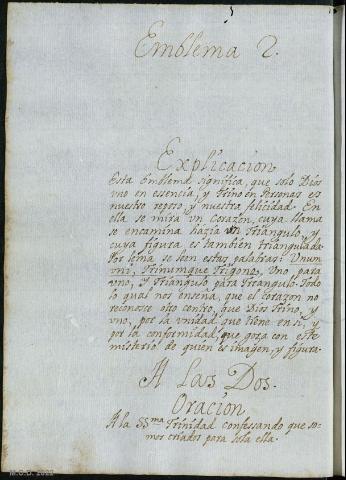 Emblema 2.
Explicacion
Esta Emblema significa, que solo Dios
vno en essencia, y Trino en Personas es
nuestro reposo, y nuestra felicidad. En
ella se mira un Corazon, cuya llama
se encamina hazia un Triangulo, y
cuya figura, es tambien triangulada.
Por lema se leen estas palabras: Unum
vni, Trinumque Trigono. Uno para
vno, y Triangulo para Treangulo. Todo
lo qual nos enseña, que el corazon no
reconosce otro centro, que Dios Trino, y
vno, por la vnidad, que tiene en si, y
por la conformidad, que goza con este
misterio, de quien es imagen, y figura.
A Las Dos.
Oracion
A la SS.ma Trinidad confessando que so-
mos criados para sola ella.
M.C.D. 2022